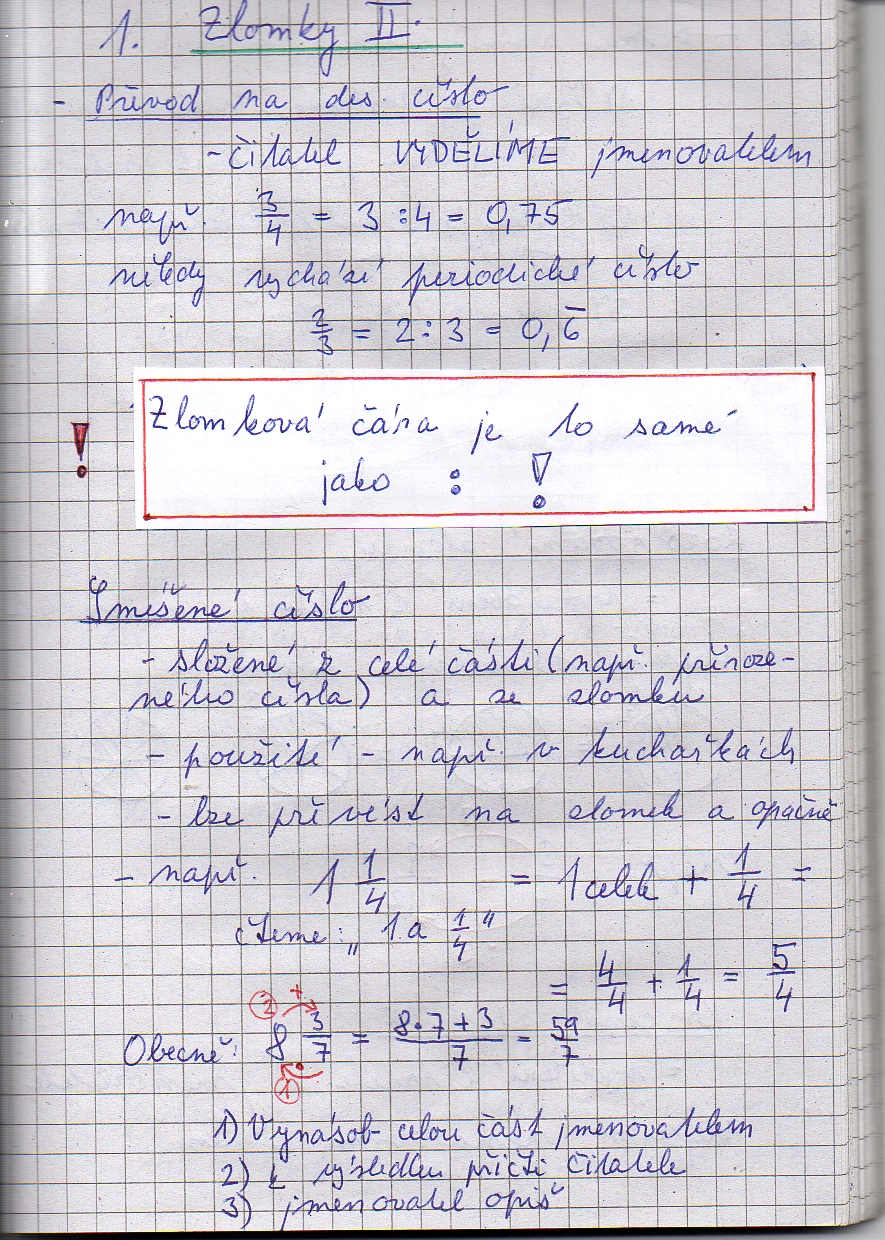 1. Zlomky II.
- Převod na des. číslo
- čitatel VYDĚLÍME jmenovatelem
např. 3/4 = 3 : 4 = 0,75
někdy vychází periodické číslo
2/3 = 2 : 3 = 0,6̅
! Zlomková čára je to samé
jako : !
Smíšené číslo
- složené z celé části (např. přiroze-
ného čísla) a ze zlomku
- použití - např. v kuchařkách
- lze převést na zlomek a opačně
- např. 1 1/4 = 1 celek + 1/4 =
čteme: „1 a 1/4"
= 4/4 + 1/4 = 5/4
② +
Obecně: 8 3/7 = (8·7+3)/7 = 59/7
① ·
1) Vynásob celou část jmenovatelem
2) k výsledku přičti čitatele
3) jmenovatel opiš